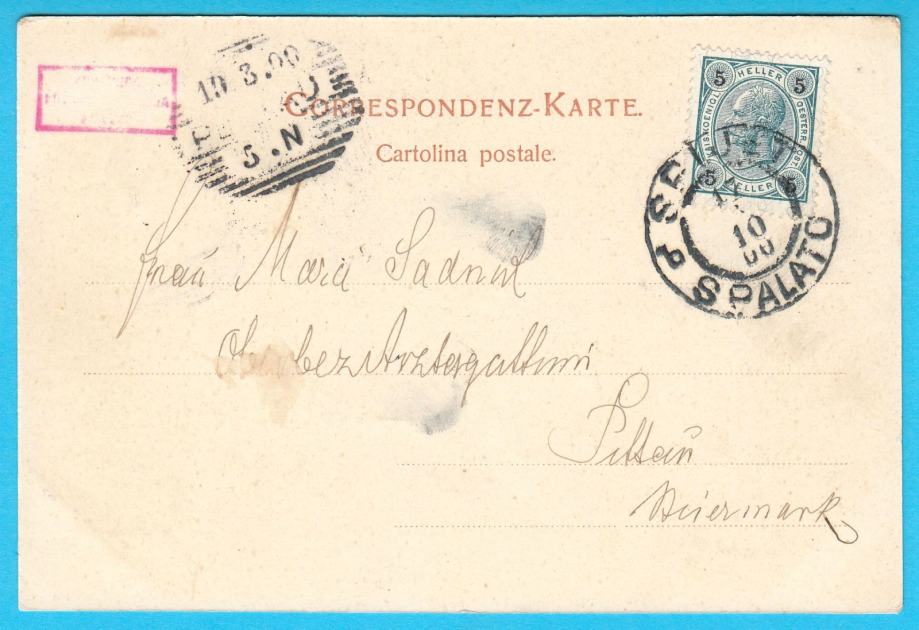 10 3.00
5.N
CORRESPONDENZ-KARTE.
Cartolina postale.
5 HELLER 5
KAIS KOENIGL OESTERR. POST.
5 HELLER 5
10
00
SPALATO
Frau Mari Sadnik
Oberbezirksarztensgattin
Pettau
Steiermark